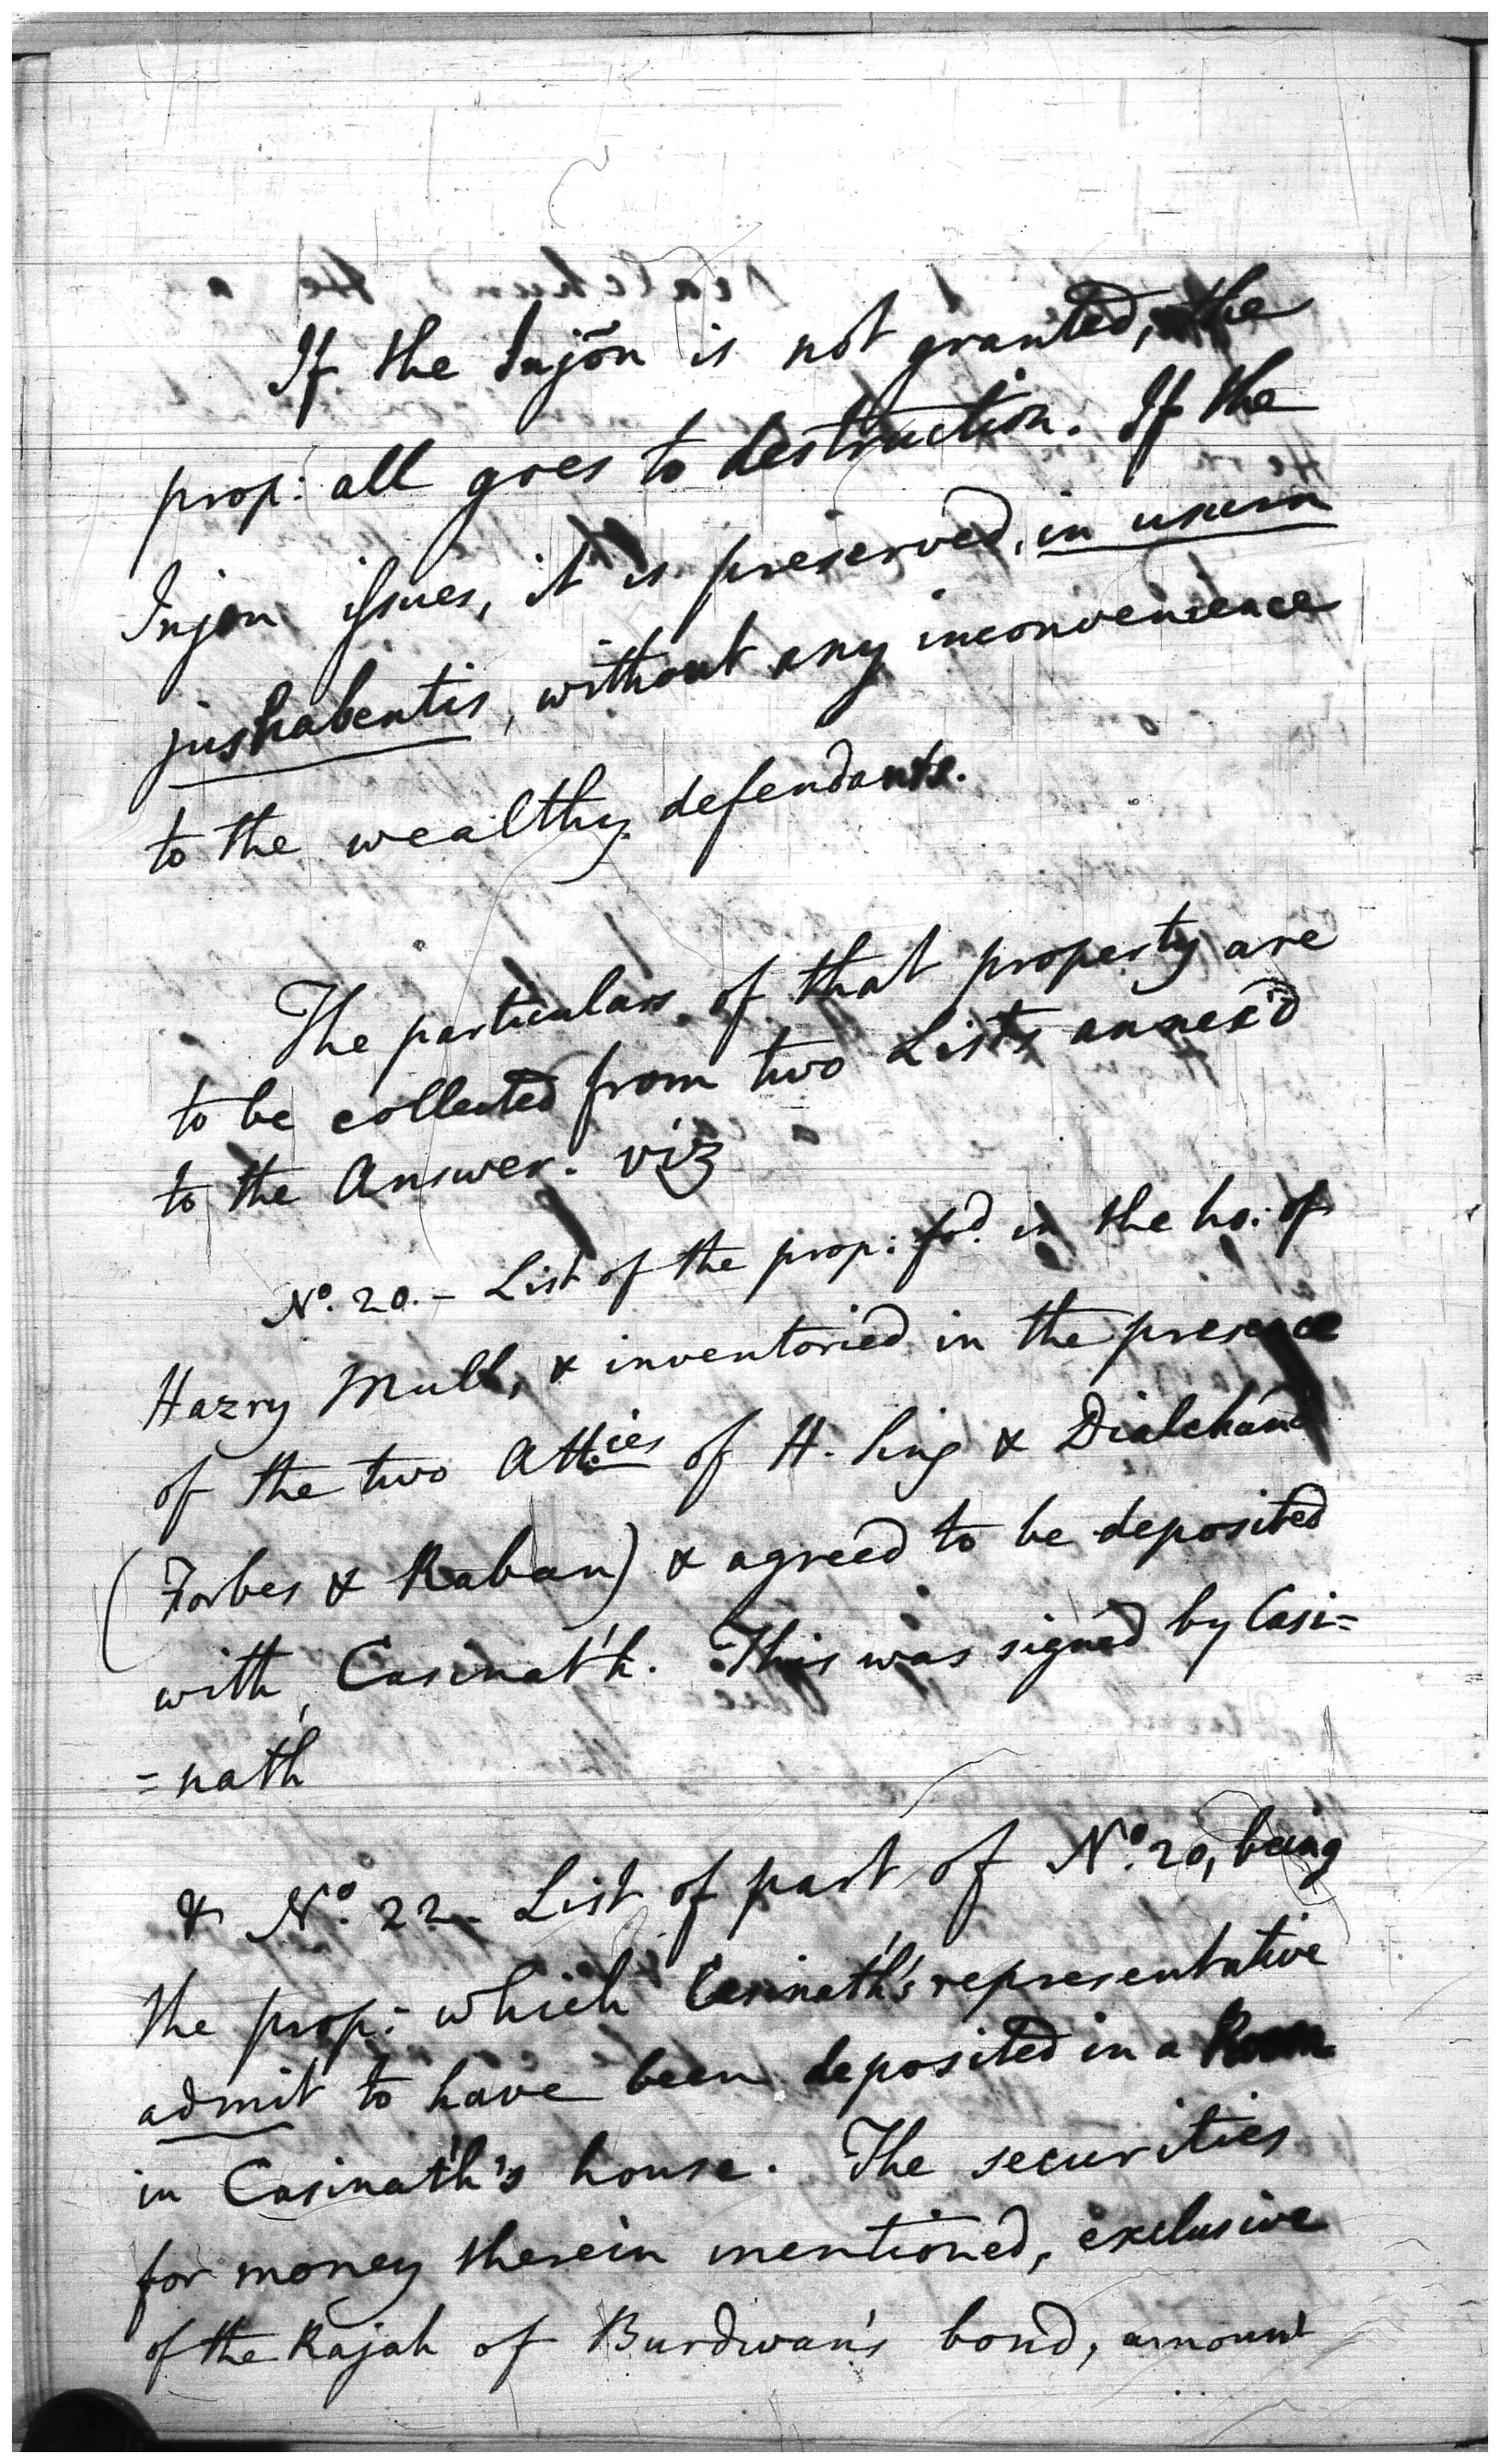 If the Injõn is not granted, the
prop: all goes to destruction. If the
Injon issues, it is preserved, in usum
jushabentis, without any inconvenience
to the wealthy defendants.
The particulars of that property are
to be collected from two Lists annex'd
to the Answer. viz
No. 20. - List of the prop: fod. in the ho: of
Hazry Mull, & inventoried in the presence
of the two Atties of H. Sing & Dialchand
(Forbes & Raban) & agreed to be deposited
with Casinath. This was signed by Casi=
=nath
& No. 22 - List of part of No. 20, being
the prop: which Casinath's representative
admit to have been deposited in a Room
in Casinath's house. The securities
for money therein mentioned, exclusive
of the Rajah of Burdwan's bond, amount